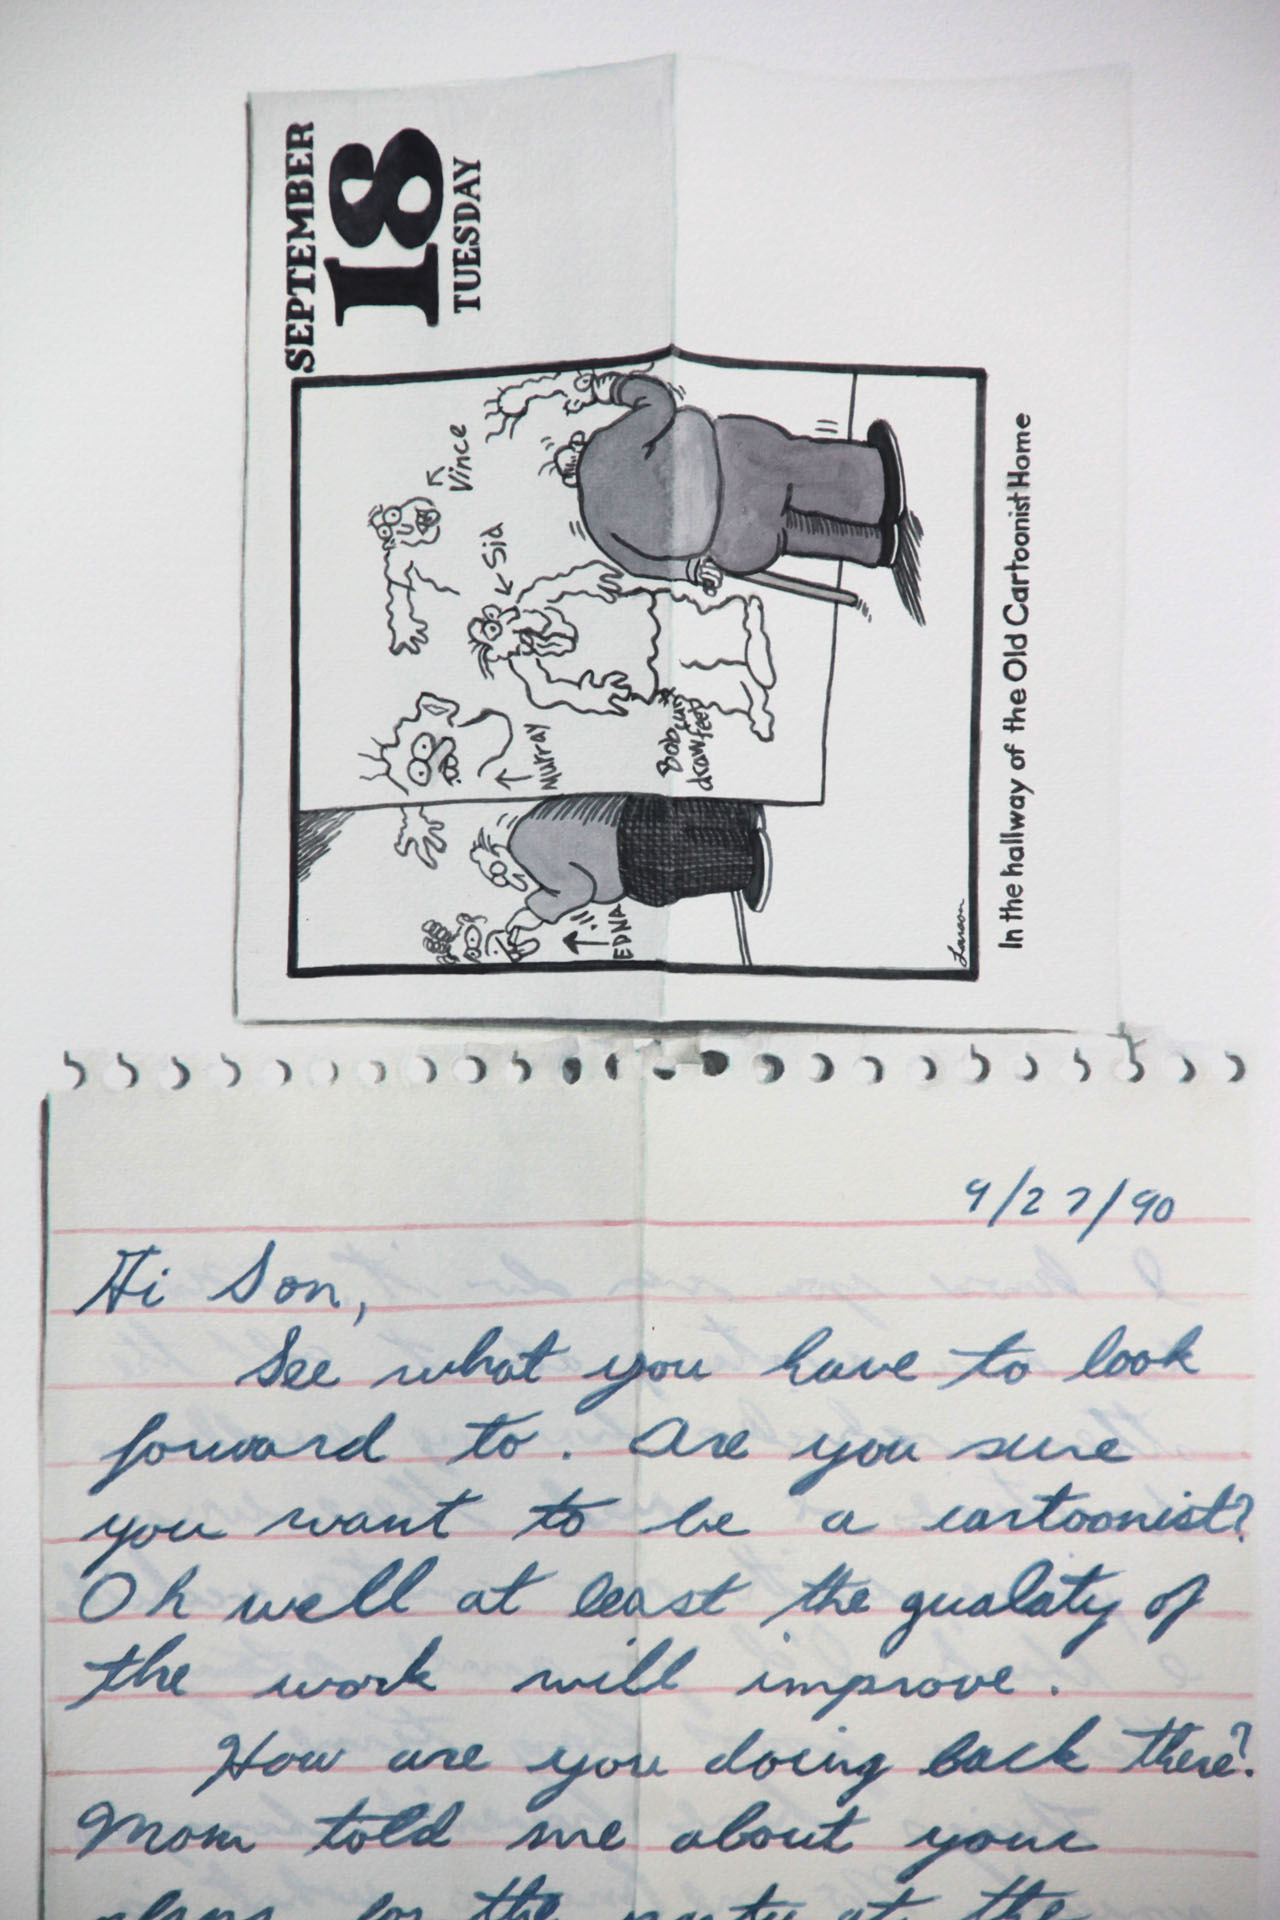 SEPTEMBER
18
TUESDAY
Vince
Sid
Murray
Bob can't
draw feet
EDNA
Larson
In the hallway of the Old Cartoonist Home
9/27/90
Hi Son,
See what you have to look
forward to. Are you sure
you want to be a cartoonist?
Oh well at least the qualaty of
the work will improve.
How are you doing back there?
Mom told me about your
plans for the party at the